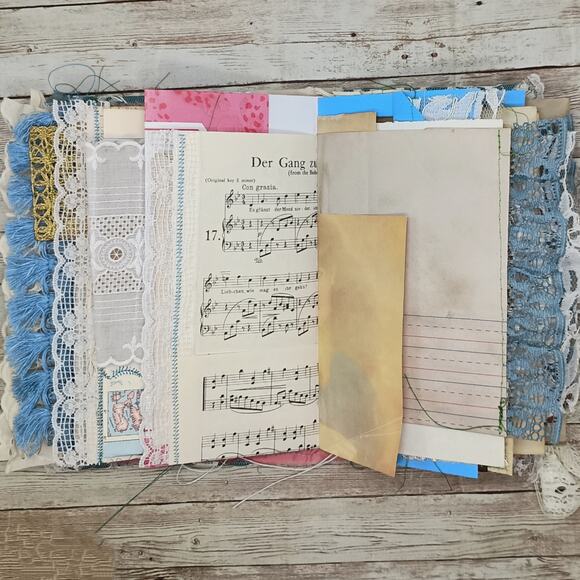 Der Gang zu
(from the Boh
(Original key E minor)
Con grazia.
17.
Es glänzt der Mond nie-der,
Lieb-chen, wie mag es dir gehn?